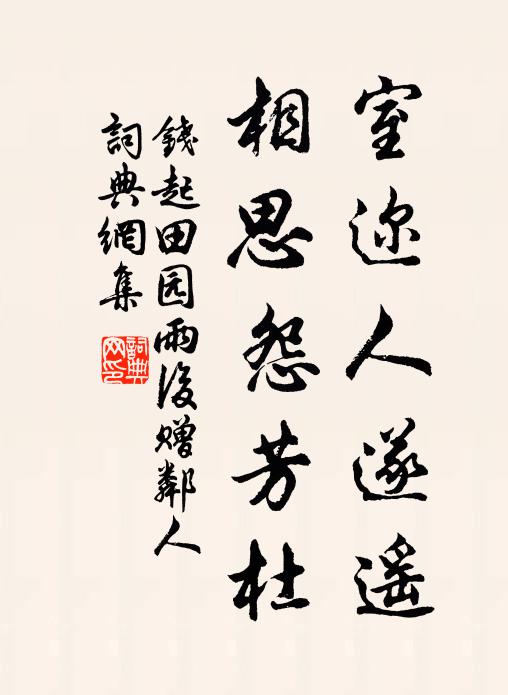 室迩人遂遥
相思怨芳杜
錢起田园雨後赠鄰人
詞典網集
詞典网印